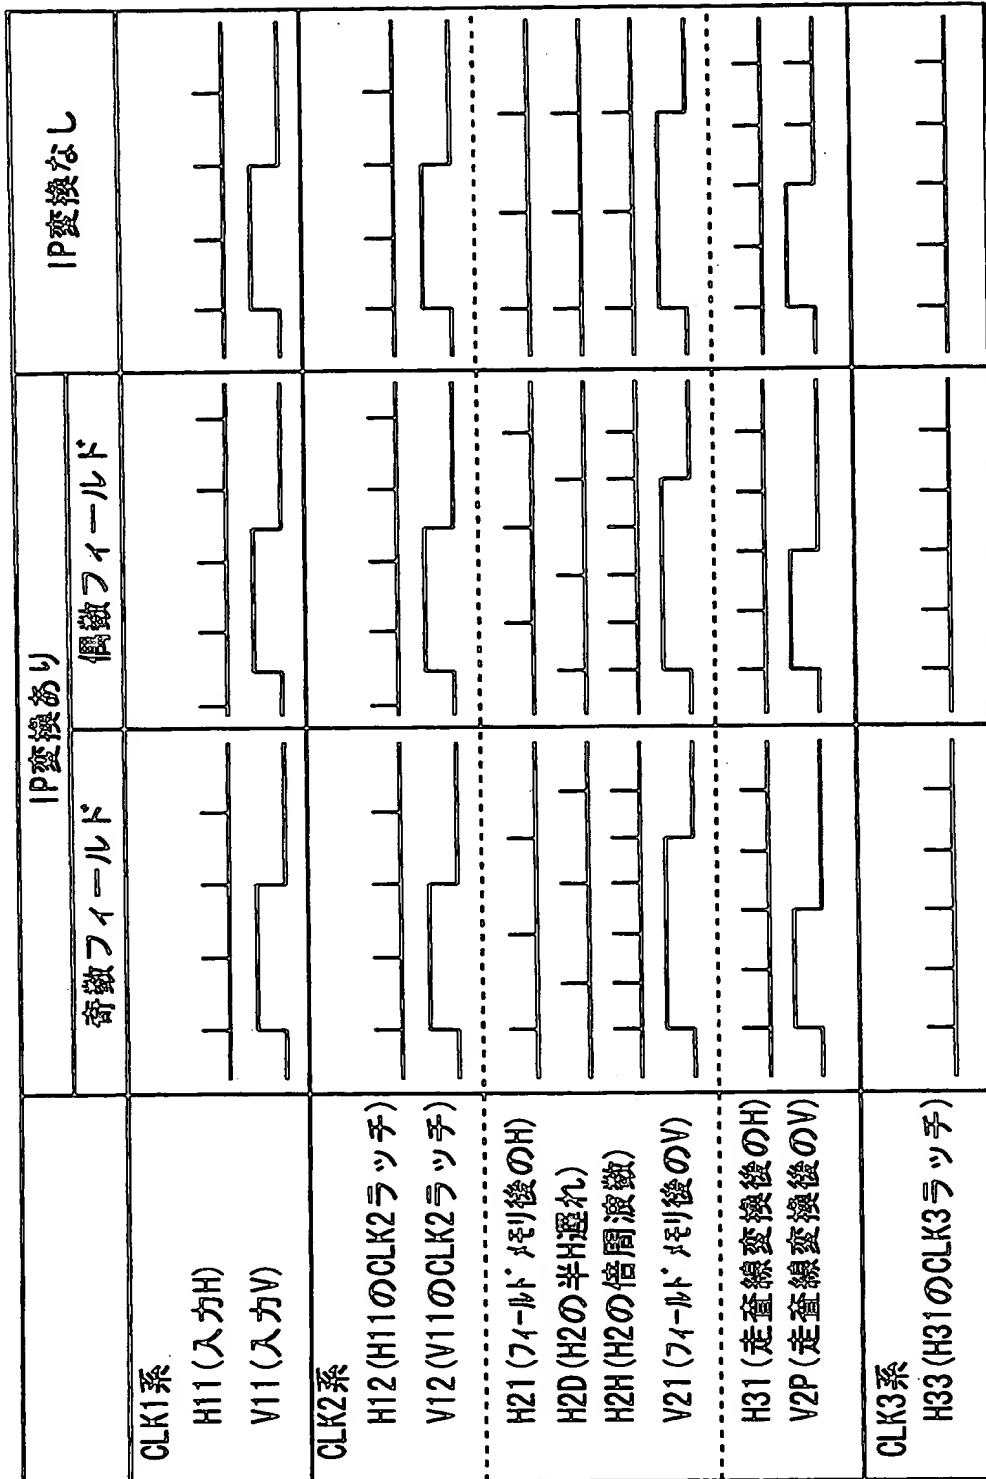 IP変換あり
IP変換なし
奇数フィールド
偶数フィールド
CLK1系
H11(入力H)
V11(入力V)
CLK2系
H12(H11のCLK2ラッチ)
V12(V11のCLK2ラッチ)
H21(フィールドメモリ後のH)
H2D(H2の半H遅れ)
H2H(H2の倍周波数)
V21(フィールドメモリ後のV)
H31(走査線変換後のH)
V2P(走査線変換後のV)
CLK3系
H33(H31のCLK3ラッチ)